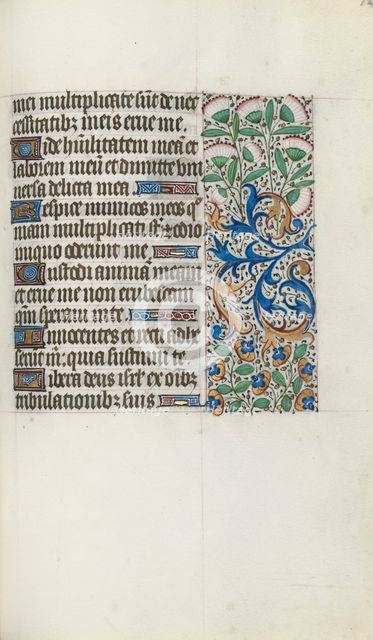 mei multiplicate sūt de nec
cessitatibꝫ meis erue me.
Vide hūilitatem meā et
laborem meū et dimitte vni
uersa delicta mea
Respice inimicos meos qm̄
niam multiplicati st̄ et odio
iniquo oderunt me
Custodi animā meam
et erue me non erubescam
qm̄ speraui in te
Innocentes et recti adhe
serūt m: quia sustinui te
Libera deus isrl ex oībꝫ
tribulationibꝫ suis